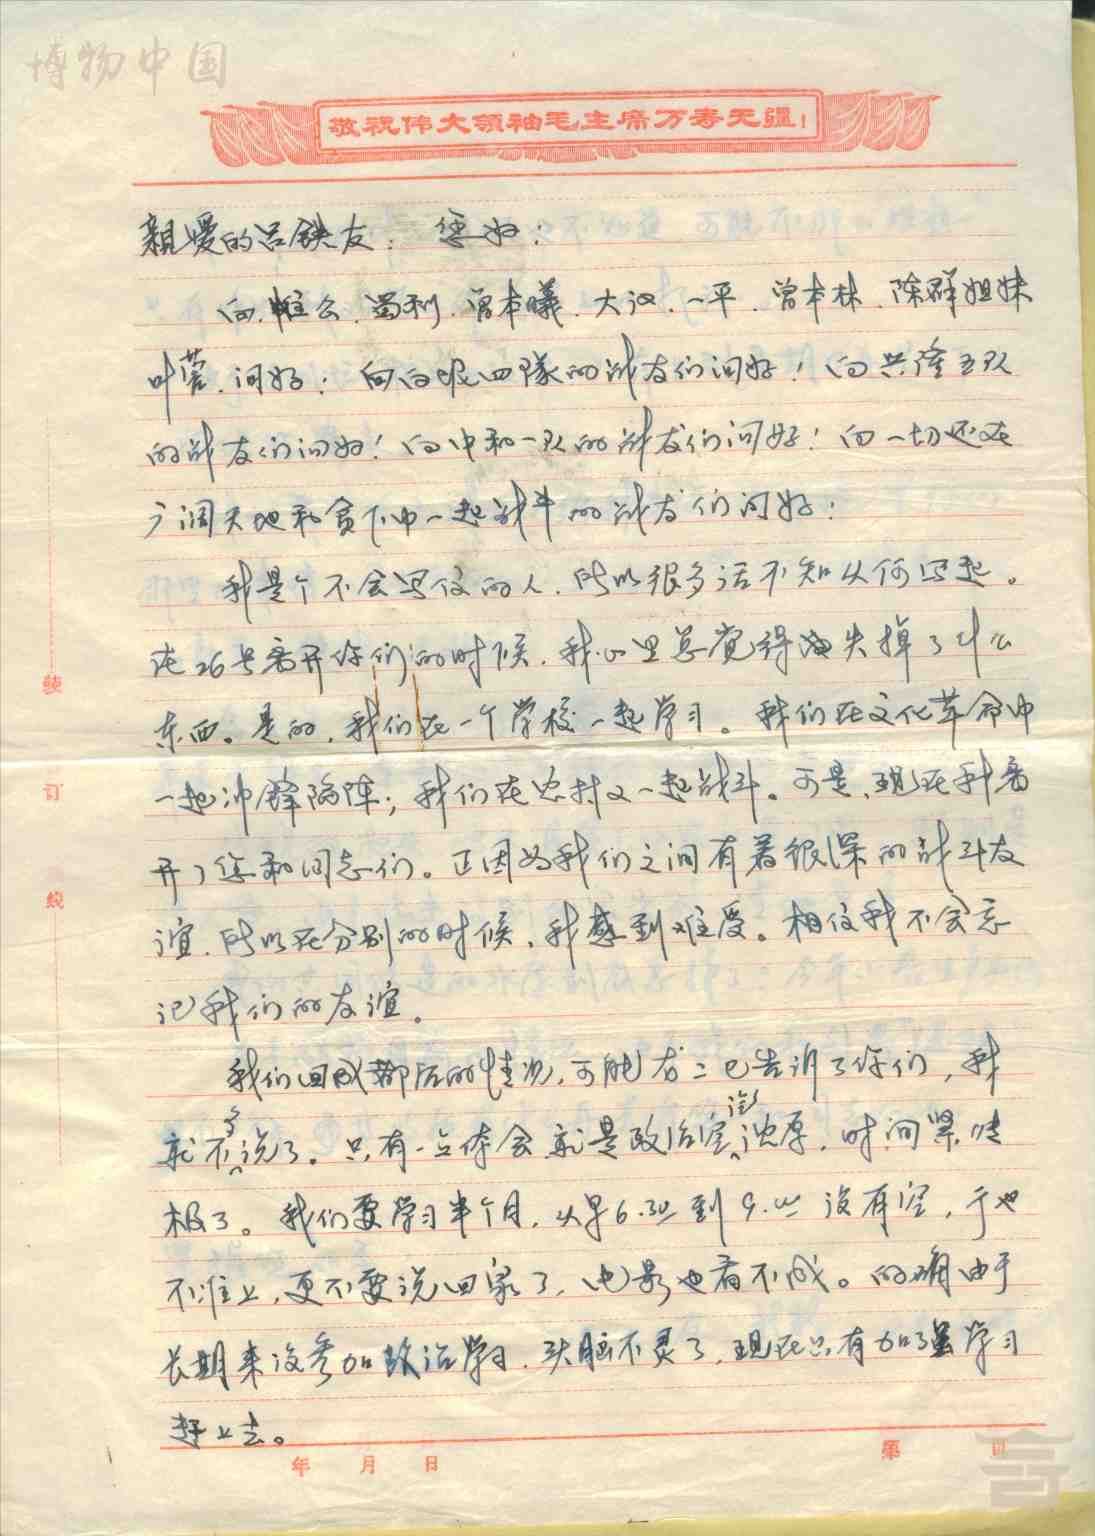 博物中国
敬祝伟大领袖毛主席万寿无疆!
親爱的吕铁友: 您好:
向 惟公、蜀利、曾本曦、大汉、一平、曾本林、陈群姐妹
叶蓉、问好: 向白坭四隊的战友们问好! 向共隆五队
的战友们问好! 向中和一队的战友们问好! 向一切还在
广阔天地和贫下中一起战斗的战友们问好:
我是个不会写信的人,所以很多话不知从何写起。
在26号离开你们的时候,我心里总觉得失掉了什么
东西。是的,我们在一个学校一起学习。我们在文化革命中
一起冲锋陷阵;我们在农村又一起战斗。可是,现在我离
开了您和同志们。正因为我们之间有着很深的战斗友
谊,所以在分别的时候,我感到难受。相信我不会忘
记我们的友谊。
我们回成都后的情况,可能友二已告诉了你们,我
就不多说了。只有一点体会就是政治空气浓厚,时间紧
极了。我们要学习半个月,从早6.30到9.00没有空,于也
不准上,更不要说回家了,电影也看不成。的确由于
长期来没参加政治学习,头脑不灵了,现在只有加强学习
赶上去。
装
订
线
年 月 日
第 页